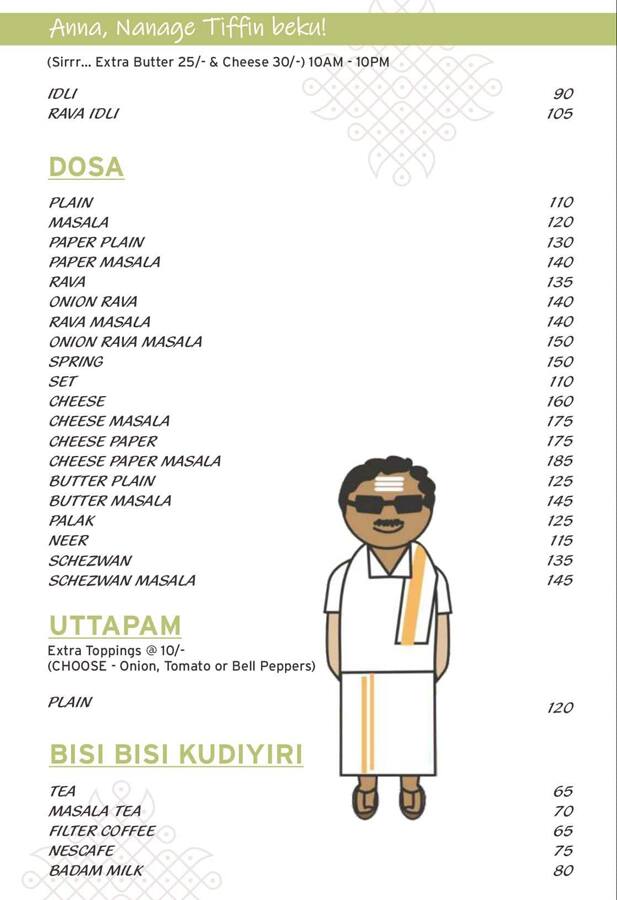 Anna, Nanage Tiffin beku!
(Sirrr... Extra Butter 25/- & Cheese 30/-) 10AM - 10PM
IDLI 90
RAVA IDLI 105
DOSA
PLAIN 110
MASALA 120
PAPER PLAIN 130
PAPER MASALA 140
RAVA 135
ONION RAVA 140
RAVA MASALA 140
ONION RAVA MASALA 150
SPRING 150
SET 110
CHEESE 160
CHEESE MASALA 175
CHEESE PAPER 175
CHEESE PAPER MASALA 185
BUTTER PLAIN 125
BUTTER MASALA 145
PALAK 125
NEER 115
SCHEZWAN 135
SCHEZWAN MASALA 145
UTTAPAM
Extra Toppings @ 10/-
(CHOOSE - Onion, Tomato or Bell Peppers)
PLAIN 120
BISI BISI KUDIYIRI
TEA 65
MASALA TEA 70
FILTER COFFEE 65
NESCAFE 75
BADAM MILK 80